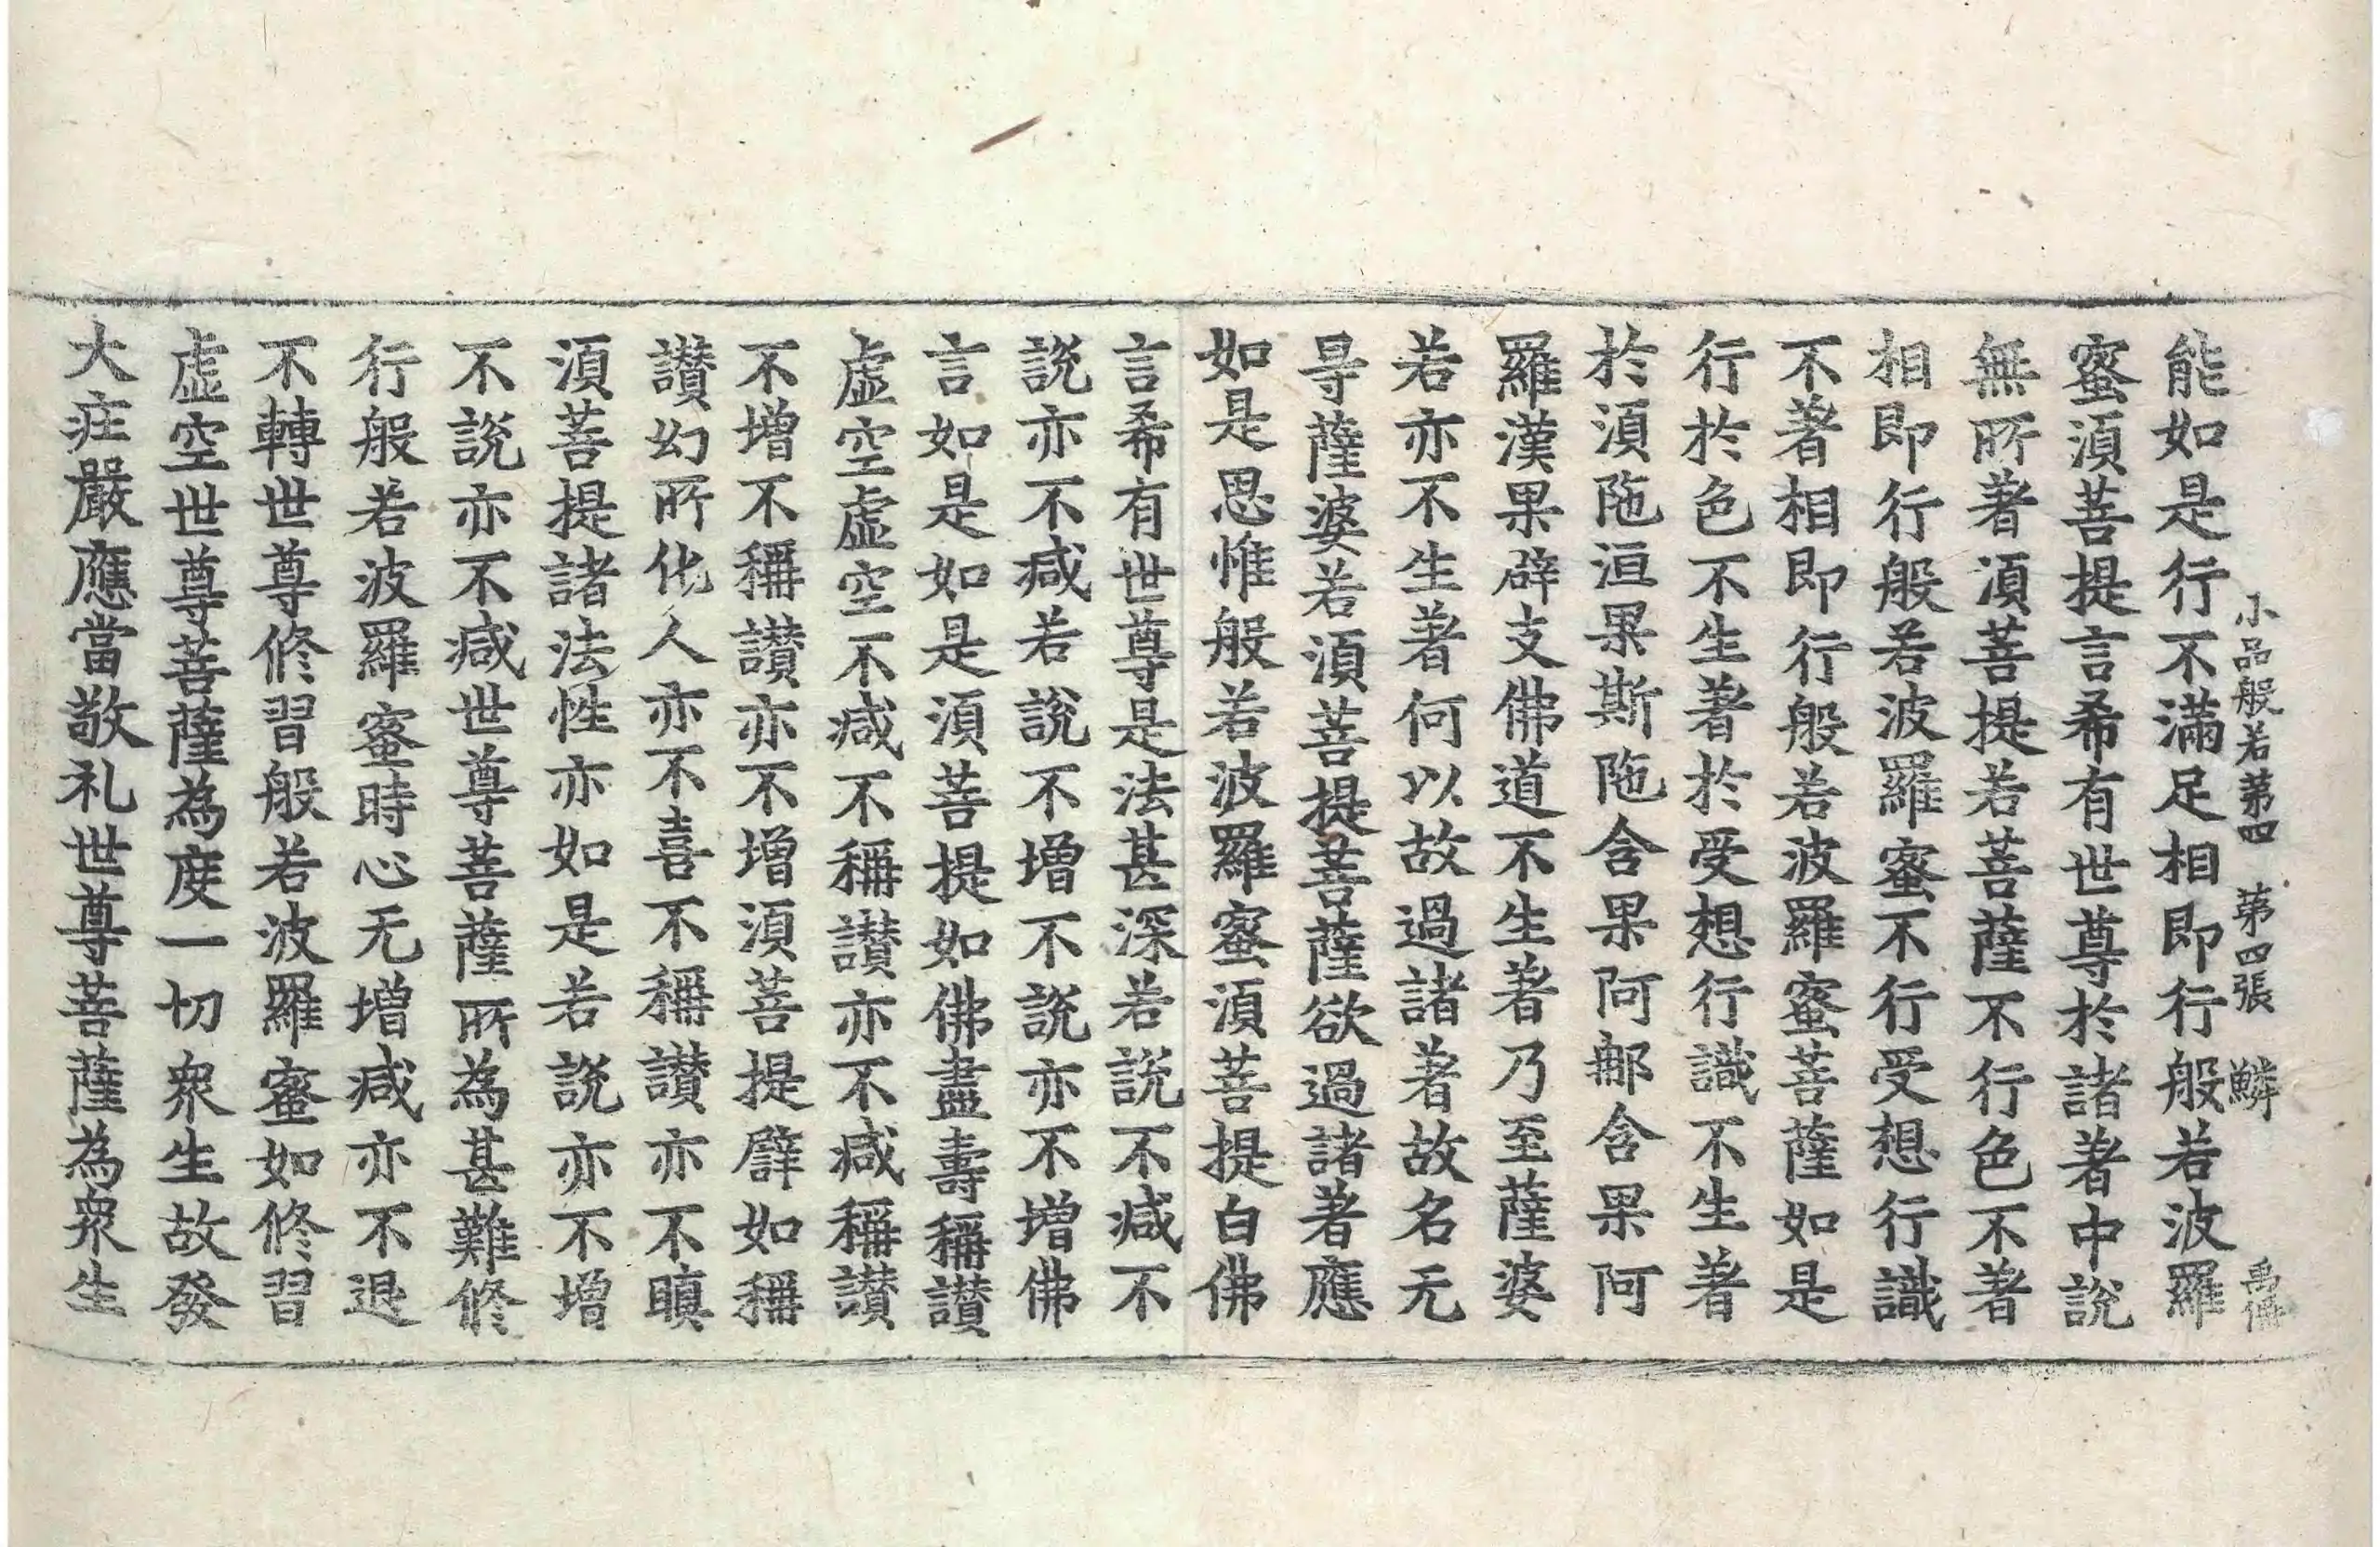 小品般若第四 第四張 鱗
能如是行不滿足相即行般若波羅
蜜須菩提言希有世尊於諸著中說
無所著須菩提若菩薩不行色不著
相即行般若波羅蜜不行受想行識
不著相即行般若波羅蜜菩薩如是
行於色不生著於受想行識不生著
於須陁洹果斯陁含果阿那含果阿
羅漢果辟支佛道不生著乃至薩婆
若亦不生著何以故過諸著故名无
㝵薩婆若須菩提菩薩欲過諸著應
如是思惟般若波羅蜜須菩提白佛
言希有世尊是法甚深若說不减不
說亦不减若說不增不說亦不增佛
言如是如是須菩提如佛盡壽稱讃
虛空虛空不减不稱讃亦不减稱讃
不增不稱讃亦不增須菩提譬如稱
讃幻所化人亦不喜不稱讃亦不瞋
須菩提諸法性亦如是若說亦不增
不說亦不减世尊菩薩所為甚難修
行般若波羅蜜時心无增减亦不退
不轉世尊修習般若波羅蜜如修習
虛空世尊菩薩為度一切衆生故發
大庄嚴應當敬礼世尊菩薩為衆生